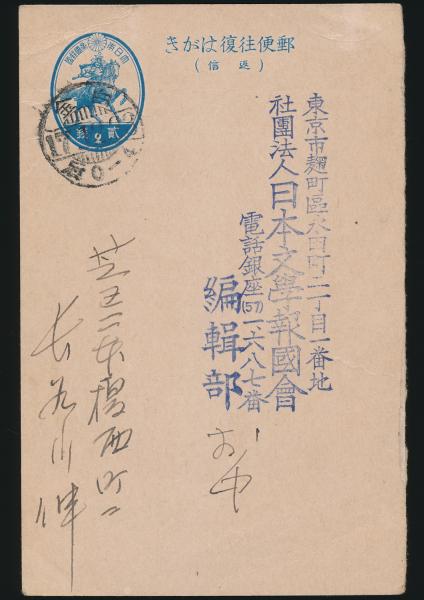 郵便往復はがき
（返信）
大日本帝國郵便
貳錢
東京市麴町區永田町二丁目一番地
社團法人日本文學報國會
電話銀座(57)一六八七番
編輯部
御中
芝区二本榎西町二
長谷川伸